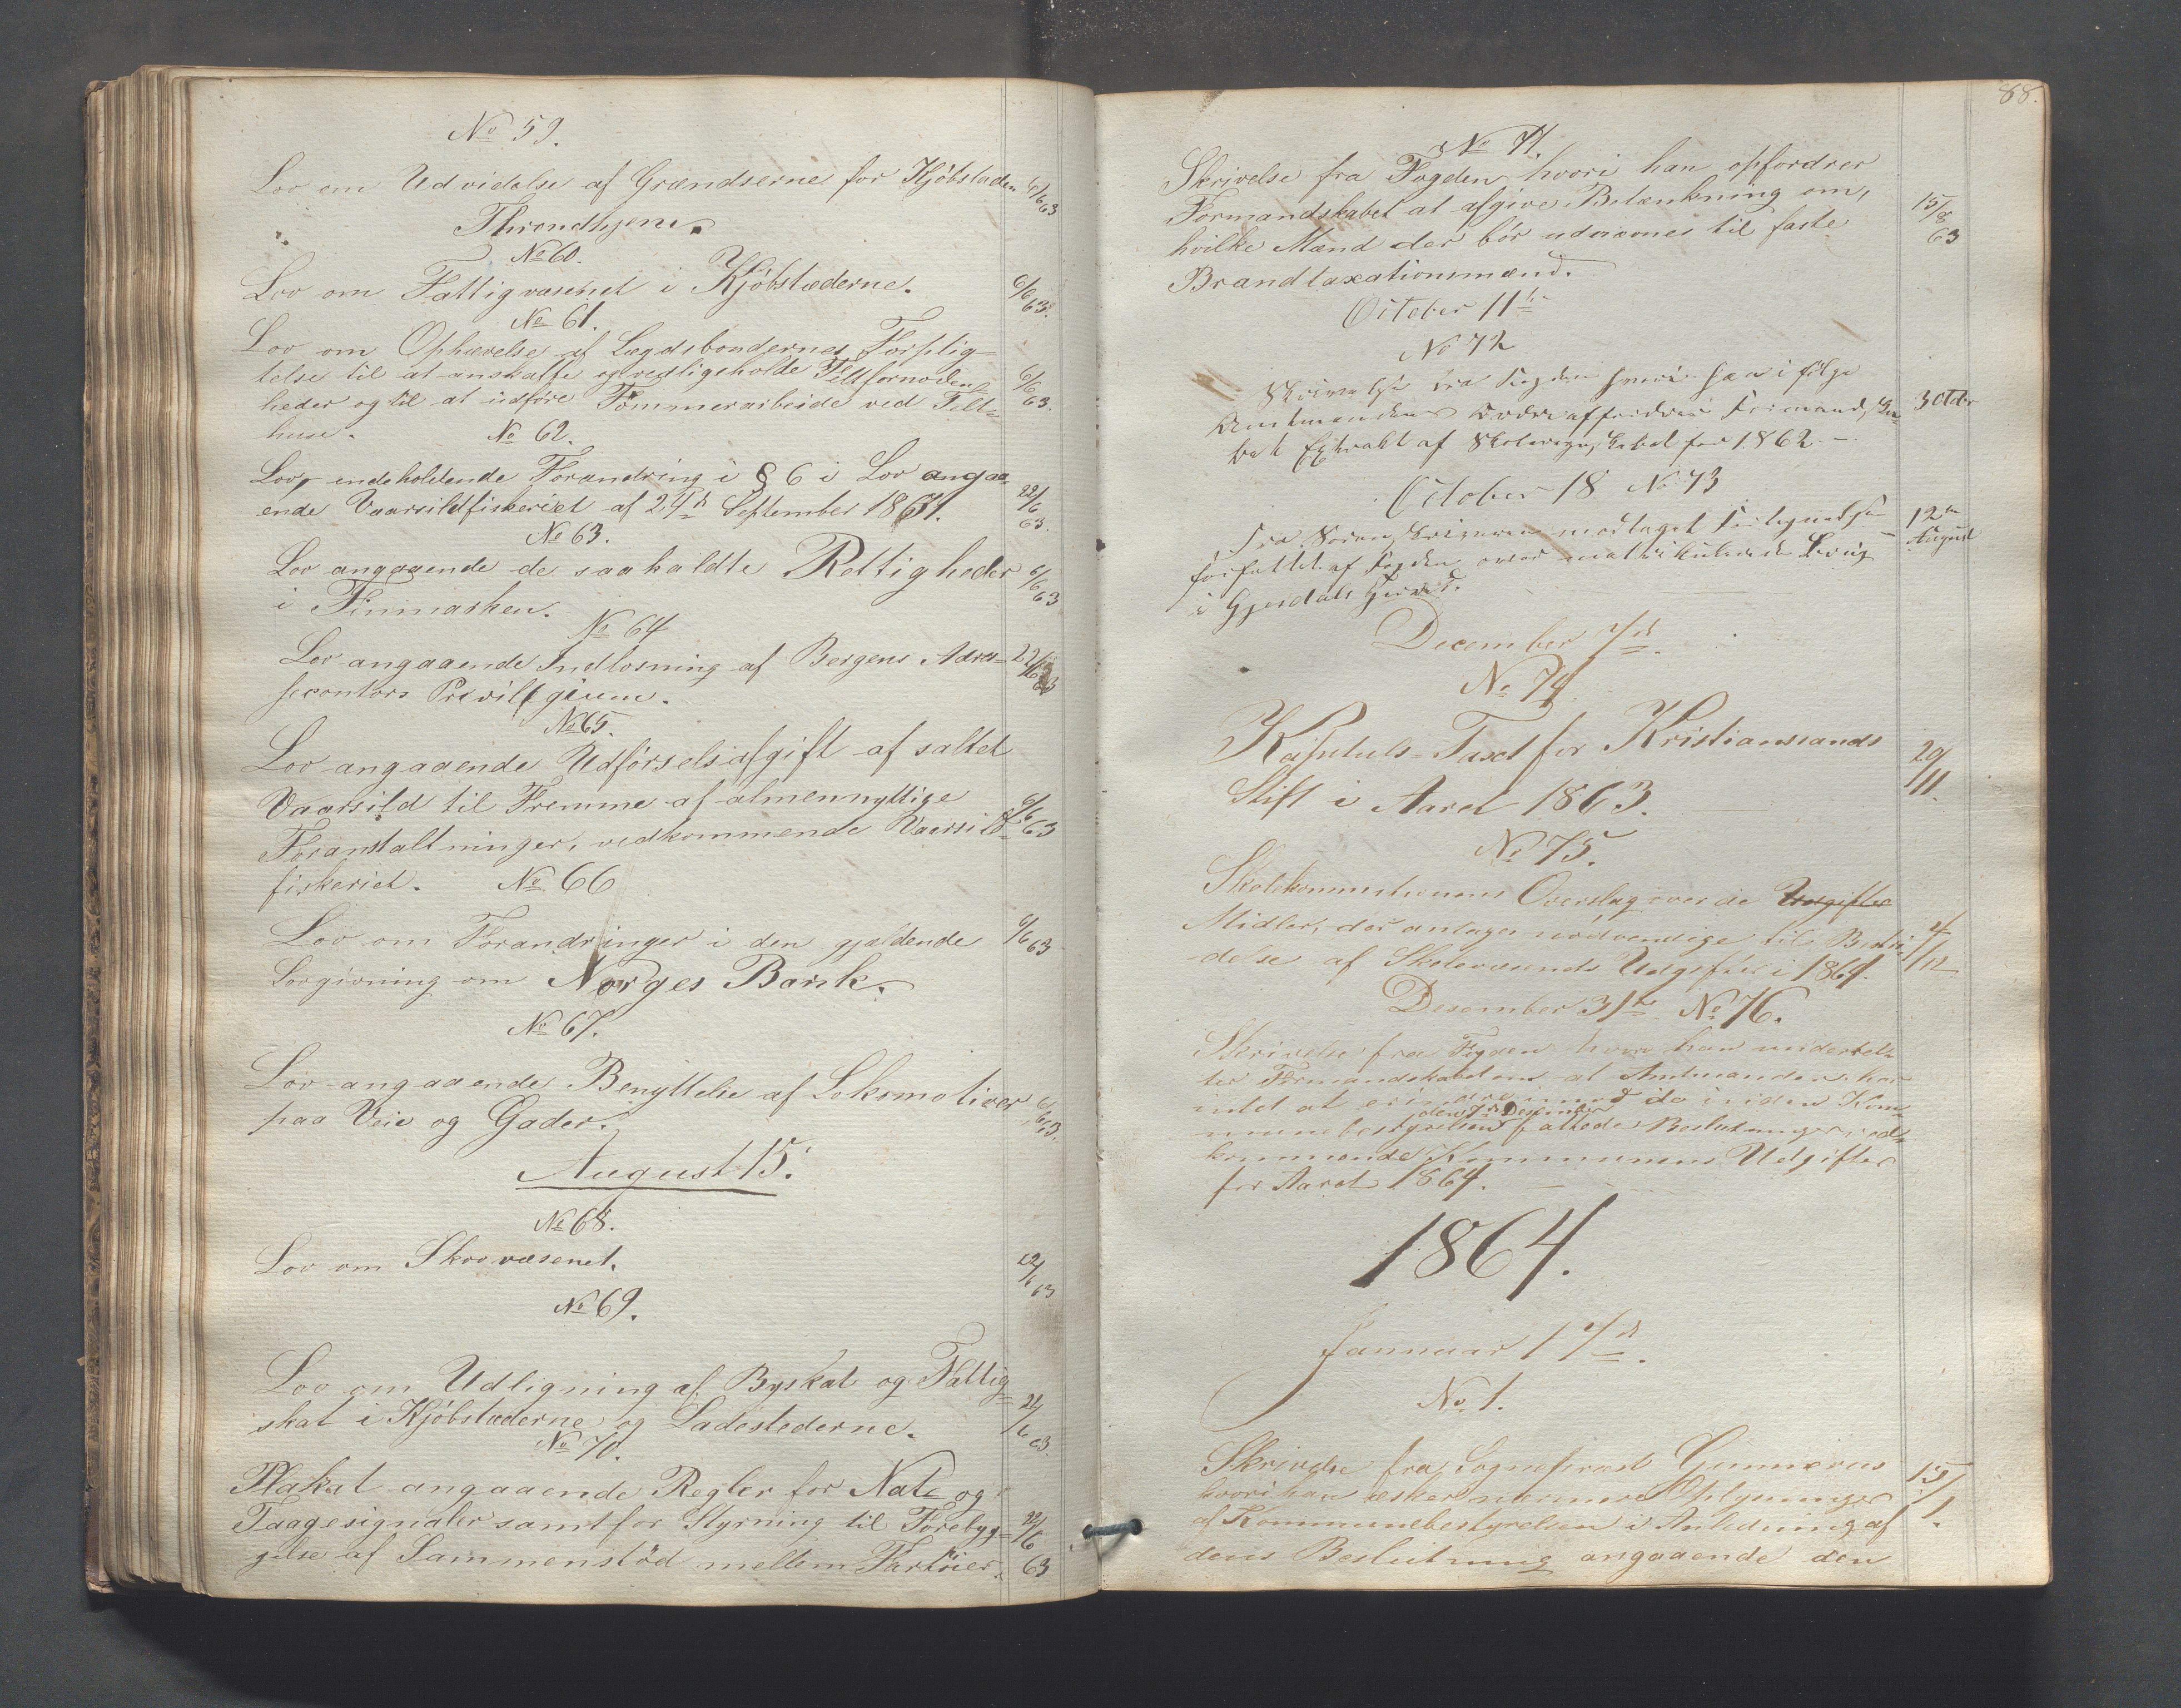 No 59.
Lov om Udvidelse af Grændserne for Kjøbstaden 6/6 63
Throndhjem.
No 60.
Lov om Fattigvæsenet i Kjøbstæderne. 6/6 63.
No 61.
Lov om Ophævelse af Lægdsbøndernes Forplig=
telse til at anskaffe og vedligeholde Teltfornøden= 6/6 63.
heder og til at udføre Tømmerarbeide ved Telt=
huse. No 62.
Lov, indeholdende Forandring i § 6 i Lov angaa=
ende Vaarsildfiskeriet af 24de September 1851. 22/6 63.
No 63.
Lov angaaende de saakaldte Rettigheder 6/6 63
i Finmarken.
No 64
Lov angaaende Indløsning af Bergens Adres= 22/6 63
secontors Privilegium.
No 65.
Lov angaaende Udførselsafgift af saltet
Vaarsild til Fremme af almennyttige
Foranstaltninger, vedkommende Vaarsild= 6/6 63
fiskeriet. No 66
Lov om Forandringer i den gjældende 6/6 63
Lovgivning om Norges Bank.
No 67.
Lov angaaende Benyttelse af Lokomotiver 6/6 63.
paa Veie og Gader.
August 15.
No 68.
Lov om Skovvæsenet. 22/6 63
No 69.
Lov om Udligning af Byskat og Fattig=
skat i Kjøbstæderne og Ladestederne. 22/6 63.
No 70.
Plakat angaaende Regler for Nat= og
Taagesignaler samt for Styrning til Forebyg= 22/6 63
gelse af Sammenstød mellem Fartøier.
88.
No 71.
Skrivelse fra Fogden, hvori han opfordrer
Formandskabet at afgive Betænkning om, 15/8 63
hvilke Mænd der bør udnævnes til faste
Brandtaxationsmænd.
October 11te
No 72
Skrivelse fra Fogden hvori han i følge
Amtmandens Ordre affordrer Formandska= 3 Octbr
bet Extrakt af Skoleregnskabet for 1862. -
October 18 No 73
Fra Sorenskriveren modtaget Fortegnelse 12te August
forfattet af Fogden over matrikulerede Brug
i Gjesdals Herred.
December 7de.
No 74
Kapitels-Taxt for Kristianssands 29/11.
Stift i Aaret 1863.
No 75.
Skolekommissionens Overslag over de Udgifter
Midler, der antages nødvendige til Bestri= 4/12
delse af Skolevæsenets Udgifter i 1864.
Desember 31te No 76.
Skrivelse fra Fogden hvori han underret=
ter Formandskabet om at Amtmanden har
intet at erindre imod de i den Kom=
den 7de Desember
munebestyrelsen fattede Beslutninger ved=
kommende Kommunens Udgifter
for Aaret 1864.
1864.
Januar 17de.
No 1.
Skrivelse fra Sogneprest Gunnerus 15/1.
hvori han æsker nærmere Oplysninger
af Kommunebestyrelsen i Anledning af
dens Beslutning angaaende den